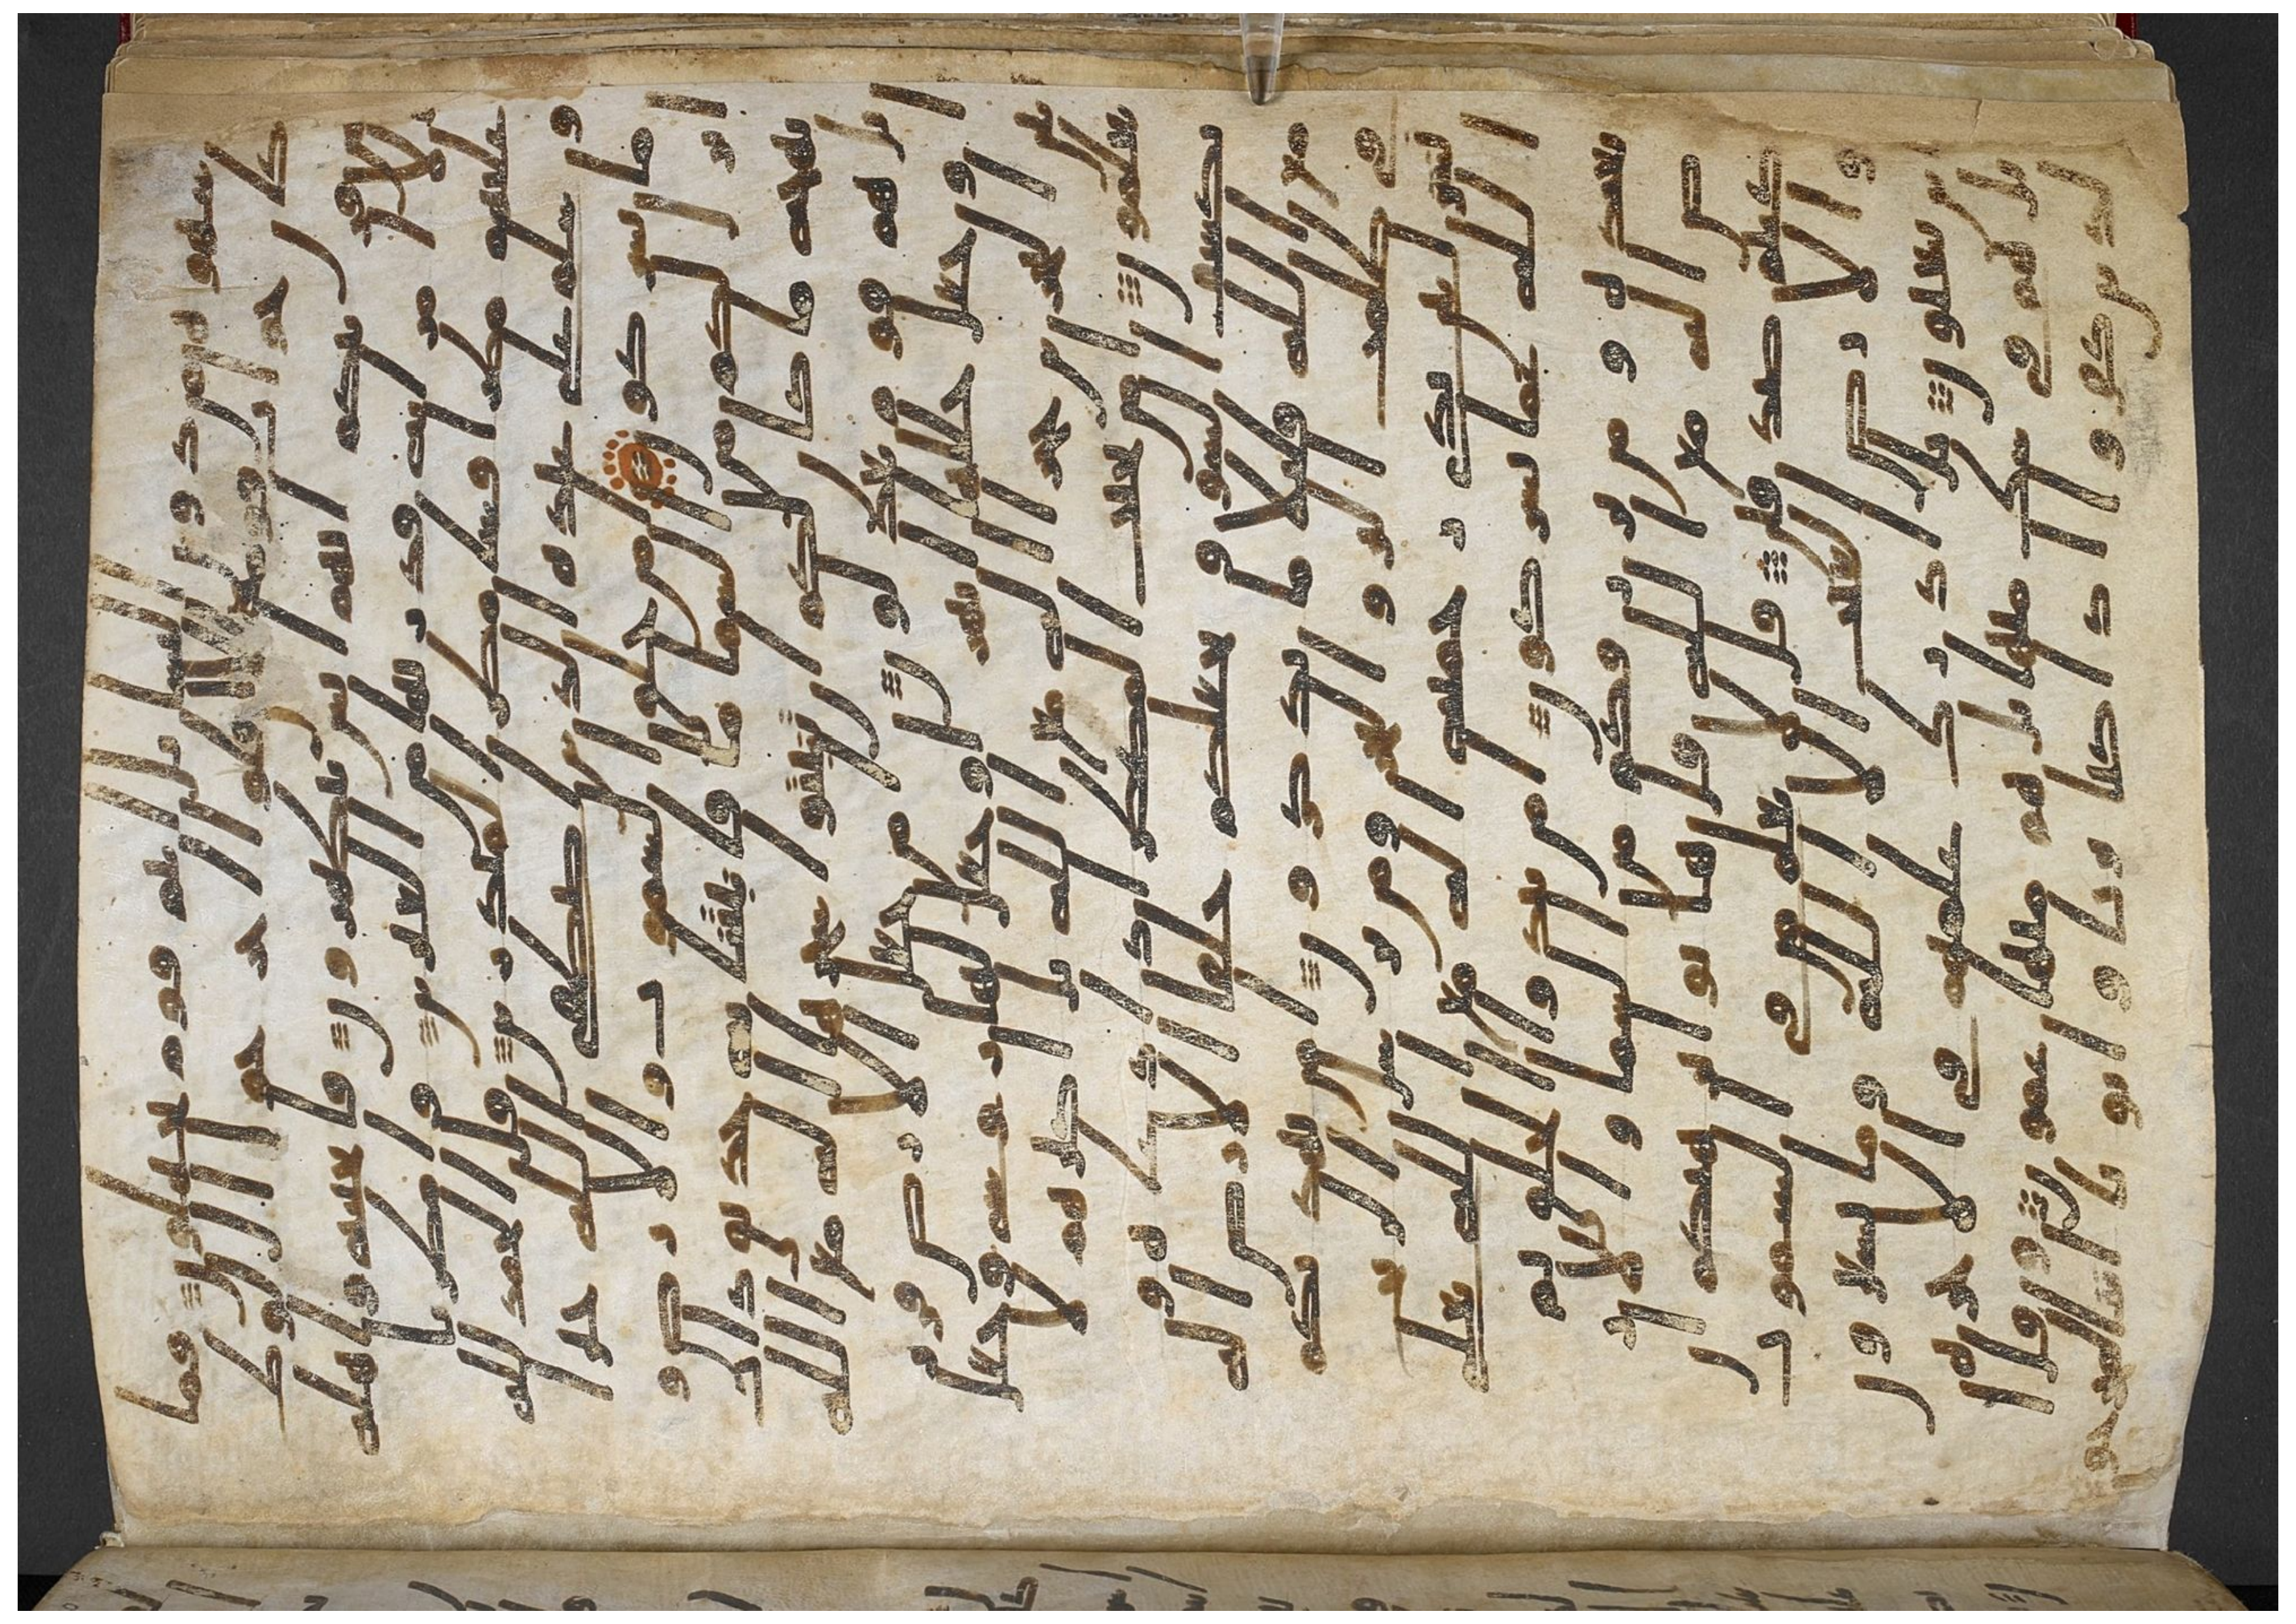 شهوه من دون النسا بل انتم قوم تجهلون فما
كان جواب قومه الا ان قالوا اخرجوا ال لوط
من قريتكم انهم اناس يتطهرون فانجينه واهله
الا امرته قدرنها من الغبرين وامطرنا
عليهم مطرا فسا مطر المنذرين قل الحمد لله
وسلم على عباده الذين اصطفى الله خير
اما يشركون امن خلق السموت والارض و
انزل لكم من السما ما فانبتنا به حدائق ذا
ت بهجه ما كان لكم ان تنبتوا شجرها اله مع الله
بل هم قوم يعدلون امن جعل الارض قر
ارا وجعل خللها انهرا وجعل لها روسي وجعل
بين البحرين حاجزا اله مع الله بل اكثرهم لا
يعلمون امن يجيب المضطر اذا دعاه و
يكشف السو ويجعلكم خلفا الارض اله
مع الله قليلا ما تذكرون امن يهديكم
في ظلمت البر والبحر ومن يرسل الريح
بشرا بين يدي رحمته اله مع الله تعلى
الله عما يشركون امن يبدوا الخلق ثم
يعيده ومن يرزقكم من السما والار
ض اله مع الله قل هاتوا برهنكم ان
كنتم صدقين قل لا يعلم من في السموت
و الارض الغيب الا الله وما يشعرون
ايان يبعثون بل ادرك علمهم في الاخره
بل هم في شك منها بل هم منها عمون وقال ا
لذين كفروا اذا كنا تربا واباونا انا لمخرجو